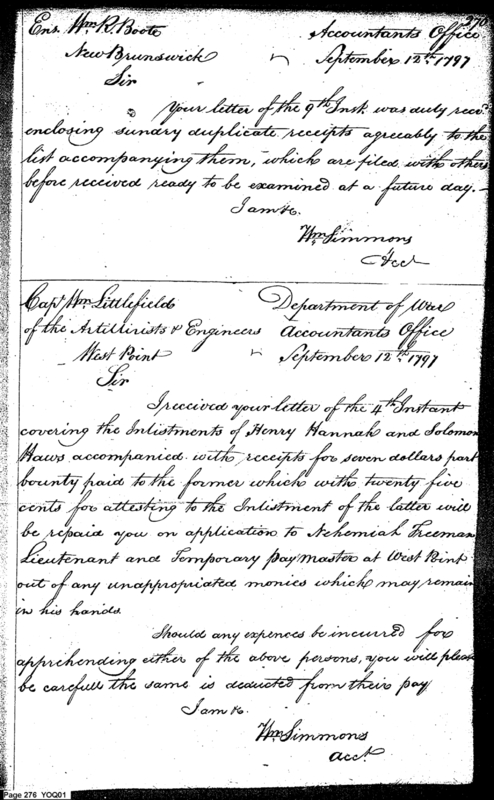 276
Ens. Wm. R. Boote Accountants Office
New Brunswick September 12th. 1797
Sir
Your letter of the 9th Inst. was duly recd.
enclosing sundry duplicate receipts agreeably to the
list accompanying them, which are filed with others
before received ready to be examined at a future day.
I am &.
Wm. Simmons
Acct
Capt. Wm. Littlefield Department of War
of the Artillirists & Engineers Accountants Office
West Point September 12th. 1797
Sir
I received your letter of the 4th Instant
covering the Inlistments of Henry Hannah and Solomon
Haws accompanied with receipts for seven dollars part
bounty paid to the former which with twenty five
cents for attesting to the Inlistment of the latter will
be repaid you on application to Nehemiah Freeman
Lieutenant and Temporary Pay Master at West Point
out of any unappropriated monies which may remain
in his hands
Should any expences be incurred for
apprehending either of the above persons, you will please
be carefull the same is deducted from their pay
I am &.
Wm. Simmons
Acct.
Page 276 YOQ01